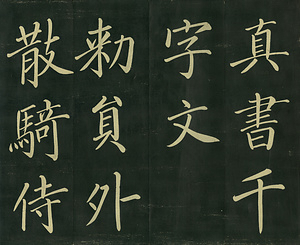 真書千
字文
勑員外
散騎侍